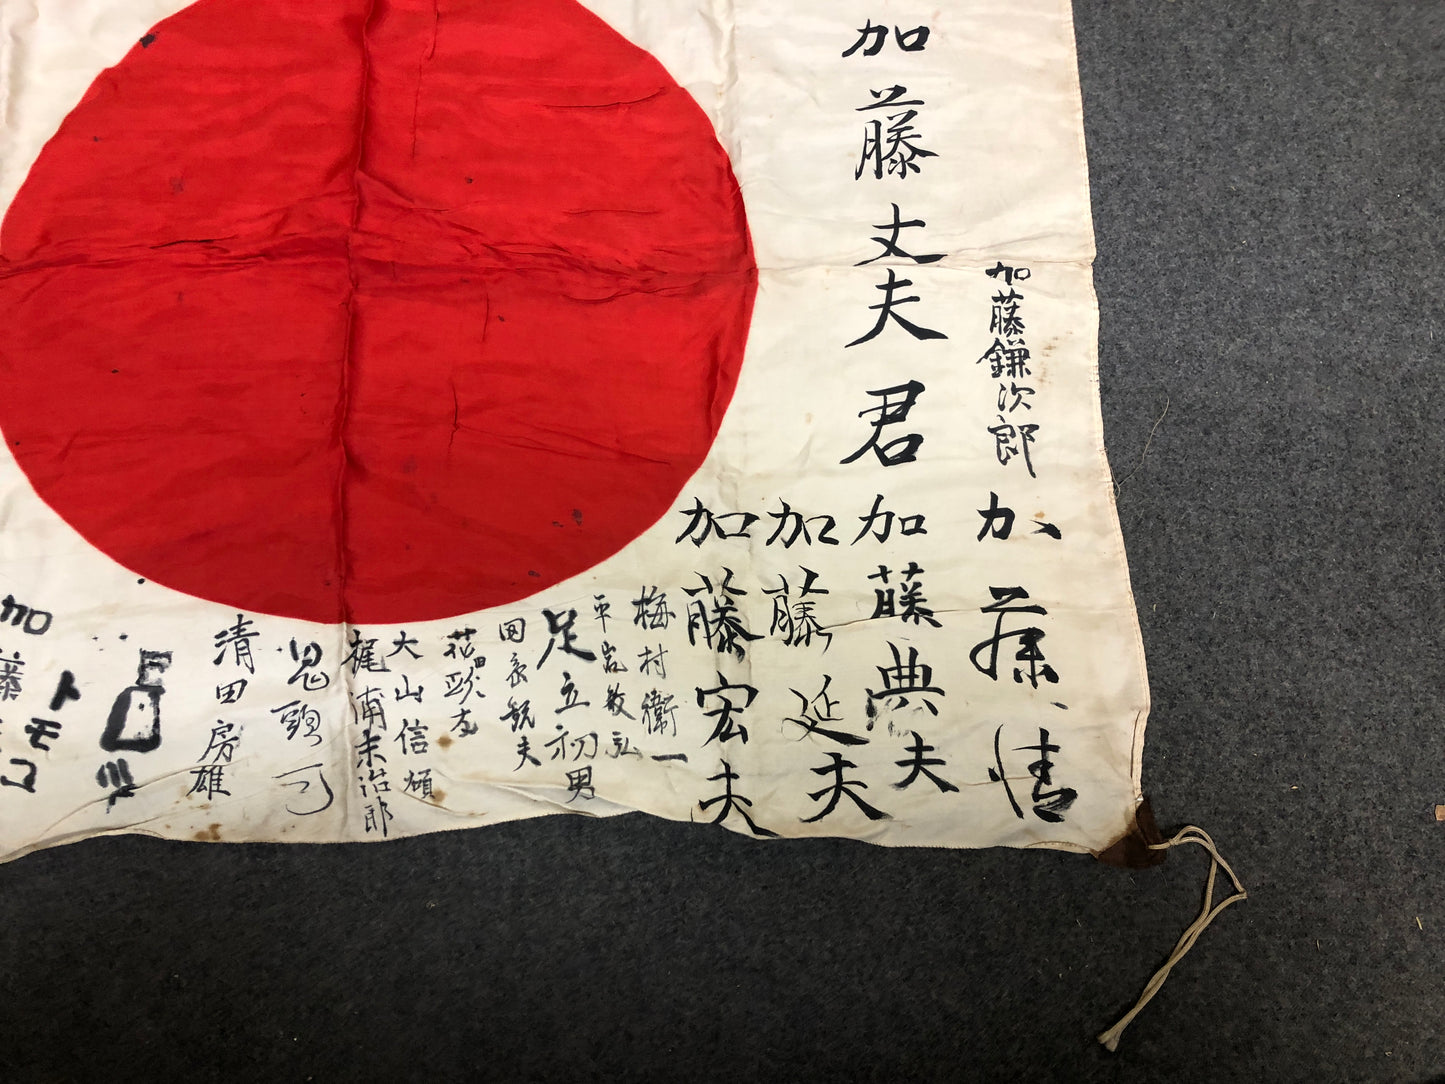 加藤鎌次郎
加藤清
加藤丈夫君
加藤典夫
加藤延夫
加藤宏夫
梅村衛一
平岩敏弘
足立初男
大山信頎
梶浦末治郎
鬼頭
清田房雄
トモコ
加藤